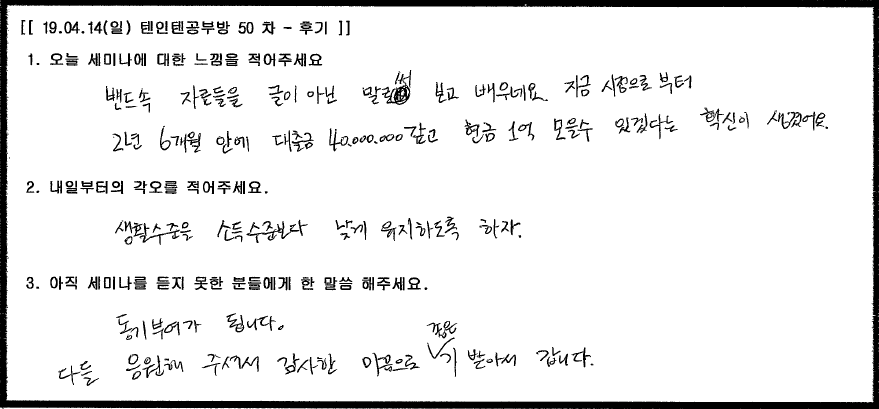 [[ 19.04.14(일) 텐인텐공부방 50 차 - 후기 ]]
1. 오늘 세미나에 대한 느낌을 적어주세요
밴드속 자료들을 글이 아닌 말로써 보고 배우네요. 지금 시점으로 부터
2년 6개월 안에 대출금 40.000.000 갚고 현금 1억 모을수 있겠다는 확신이 생겼어요.
2. 내일부터의 각오를 적어주세요.
생활수준을 소득수준보다 낮게 유지하도록 하자.
3. 아직 세미나를 듣지 못한 분들에게 한 말씀 해주세요.
동기부여가 됩니다.
다들 응원해 주셔서 감사한 마음으로 좋은 기 받아서 갑니다.